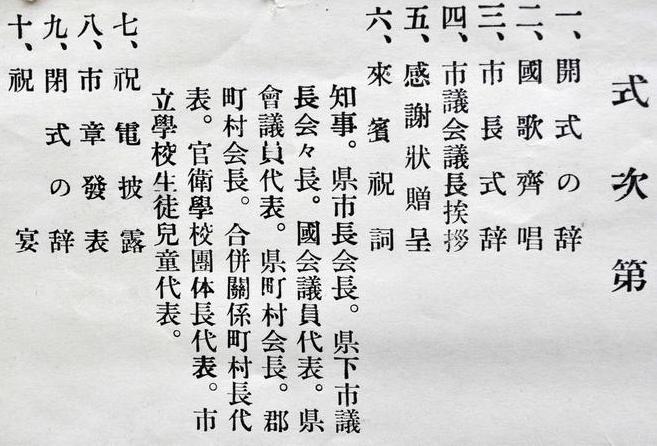 式次第
一、開式の辞
二、國歌齊唱
三、市長式辞
四、市議会議長挨拶
五、感謝狀贈呈
六、來賓祝詞
知事。県市長会長。県下市議
長会々長。國会議員代表。県
會議員代表。県町村会長。郡
町村会長。合併關係町村長代
表。官衛學校團体長代表。市
立學校生徒兒童代表。
七、祝電披露
八、市章發表
九、閉式の辞
十、祝宴